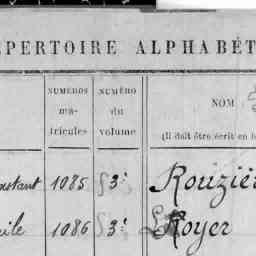 ÉPERTOIRE ALPHABÉT
NUMÉROS ma- tricules
NUMÉRO du volume
NOM
(Il doit être écrit en b
nstant 1085 3e Rouziè
cile 1086 3e Royer